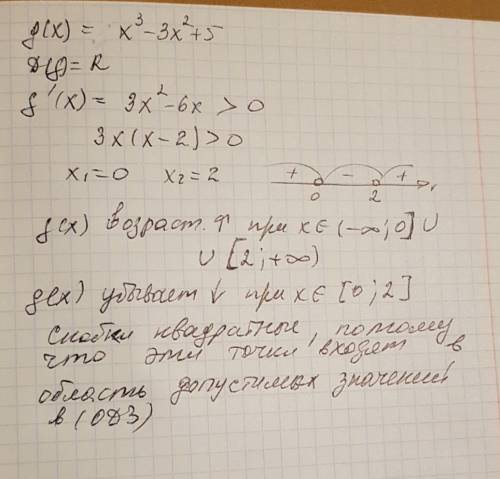 f(x) = x³-3x²+5
D(f)=R
f'(x) = 3x²-6x > 0
3x(x-2)>0
x₁=0 x₂=2 + - + 0 2 x
f(x) возраст. ↑ при x∈(-∞;0] ∪
∪ [2;+∞)
f(x) убывает ↓ при x∈ [0;2]
Скобки квадратные, потому
что эти точки входят в
область допустимых значений
в (ОДЗ)